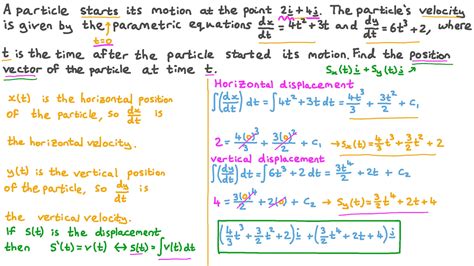 A particle starts its motion at the point 2i+4j. The particle's velocity
is given by the parametric equations dx/dt = 4t²+3t and dy/dt = 6t³+2, where
t=0
t is the time after the particle started its motion. Find the position
vector of the particle at time t.
Sₓ(t)i + Sᵧ(t)j
x(t) is the horizontal position
of the particle, so dx/dt is
the horizontal velocity.
y(t) is the vertical position
of the particle, so dy/dt is
the vertical velocity.
If S(t) is the displacement
then S'(t)=v(t) ↔ s(t)=∫v(t)dt
Horizontal displacement
∫(dx/dt)dt = ∫4t²+3t dt = 4t³/3 + 3t²/2 + C₁
2 = 4(0)³/3 + 3(0)²/2 + C₁ → Sₓ(t) = 4/3t³ + 3/2t² + 2
vertical displacement
∫(dy/dt)dt = ∫6t³+2 dt = 3t⁴/2 + 2t + C₁
4 = 3(0)⁴/2 + 2(0) + C₁ → Sᵧ(t) = 3/2t⁴ + 2t + 4
(4/3t³ + 3/2t² + 2)i + (3/2t⁴ + 2t + 4)j